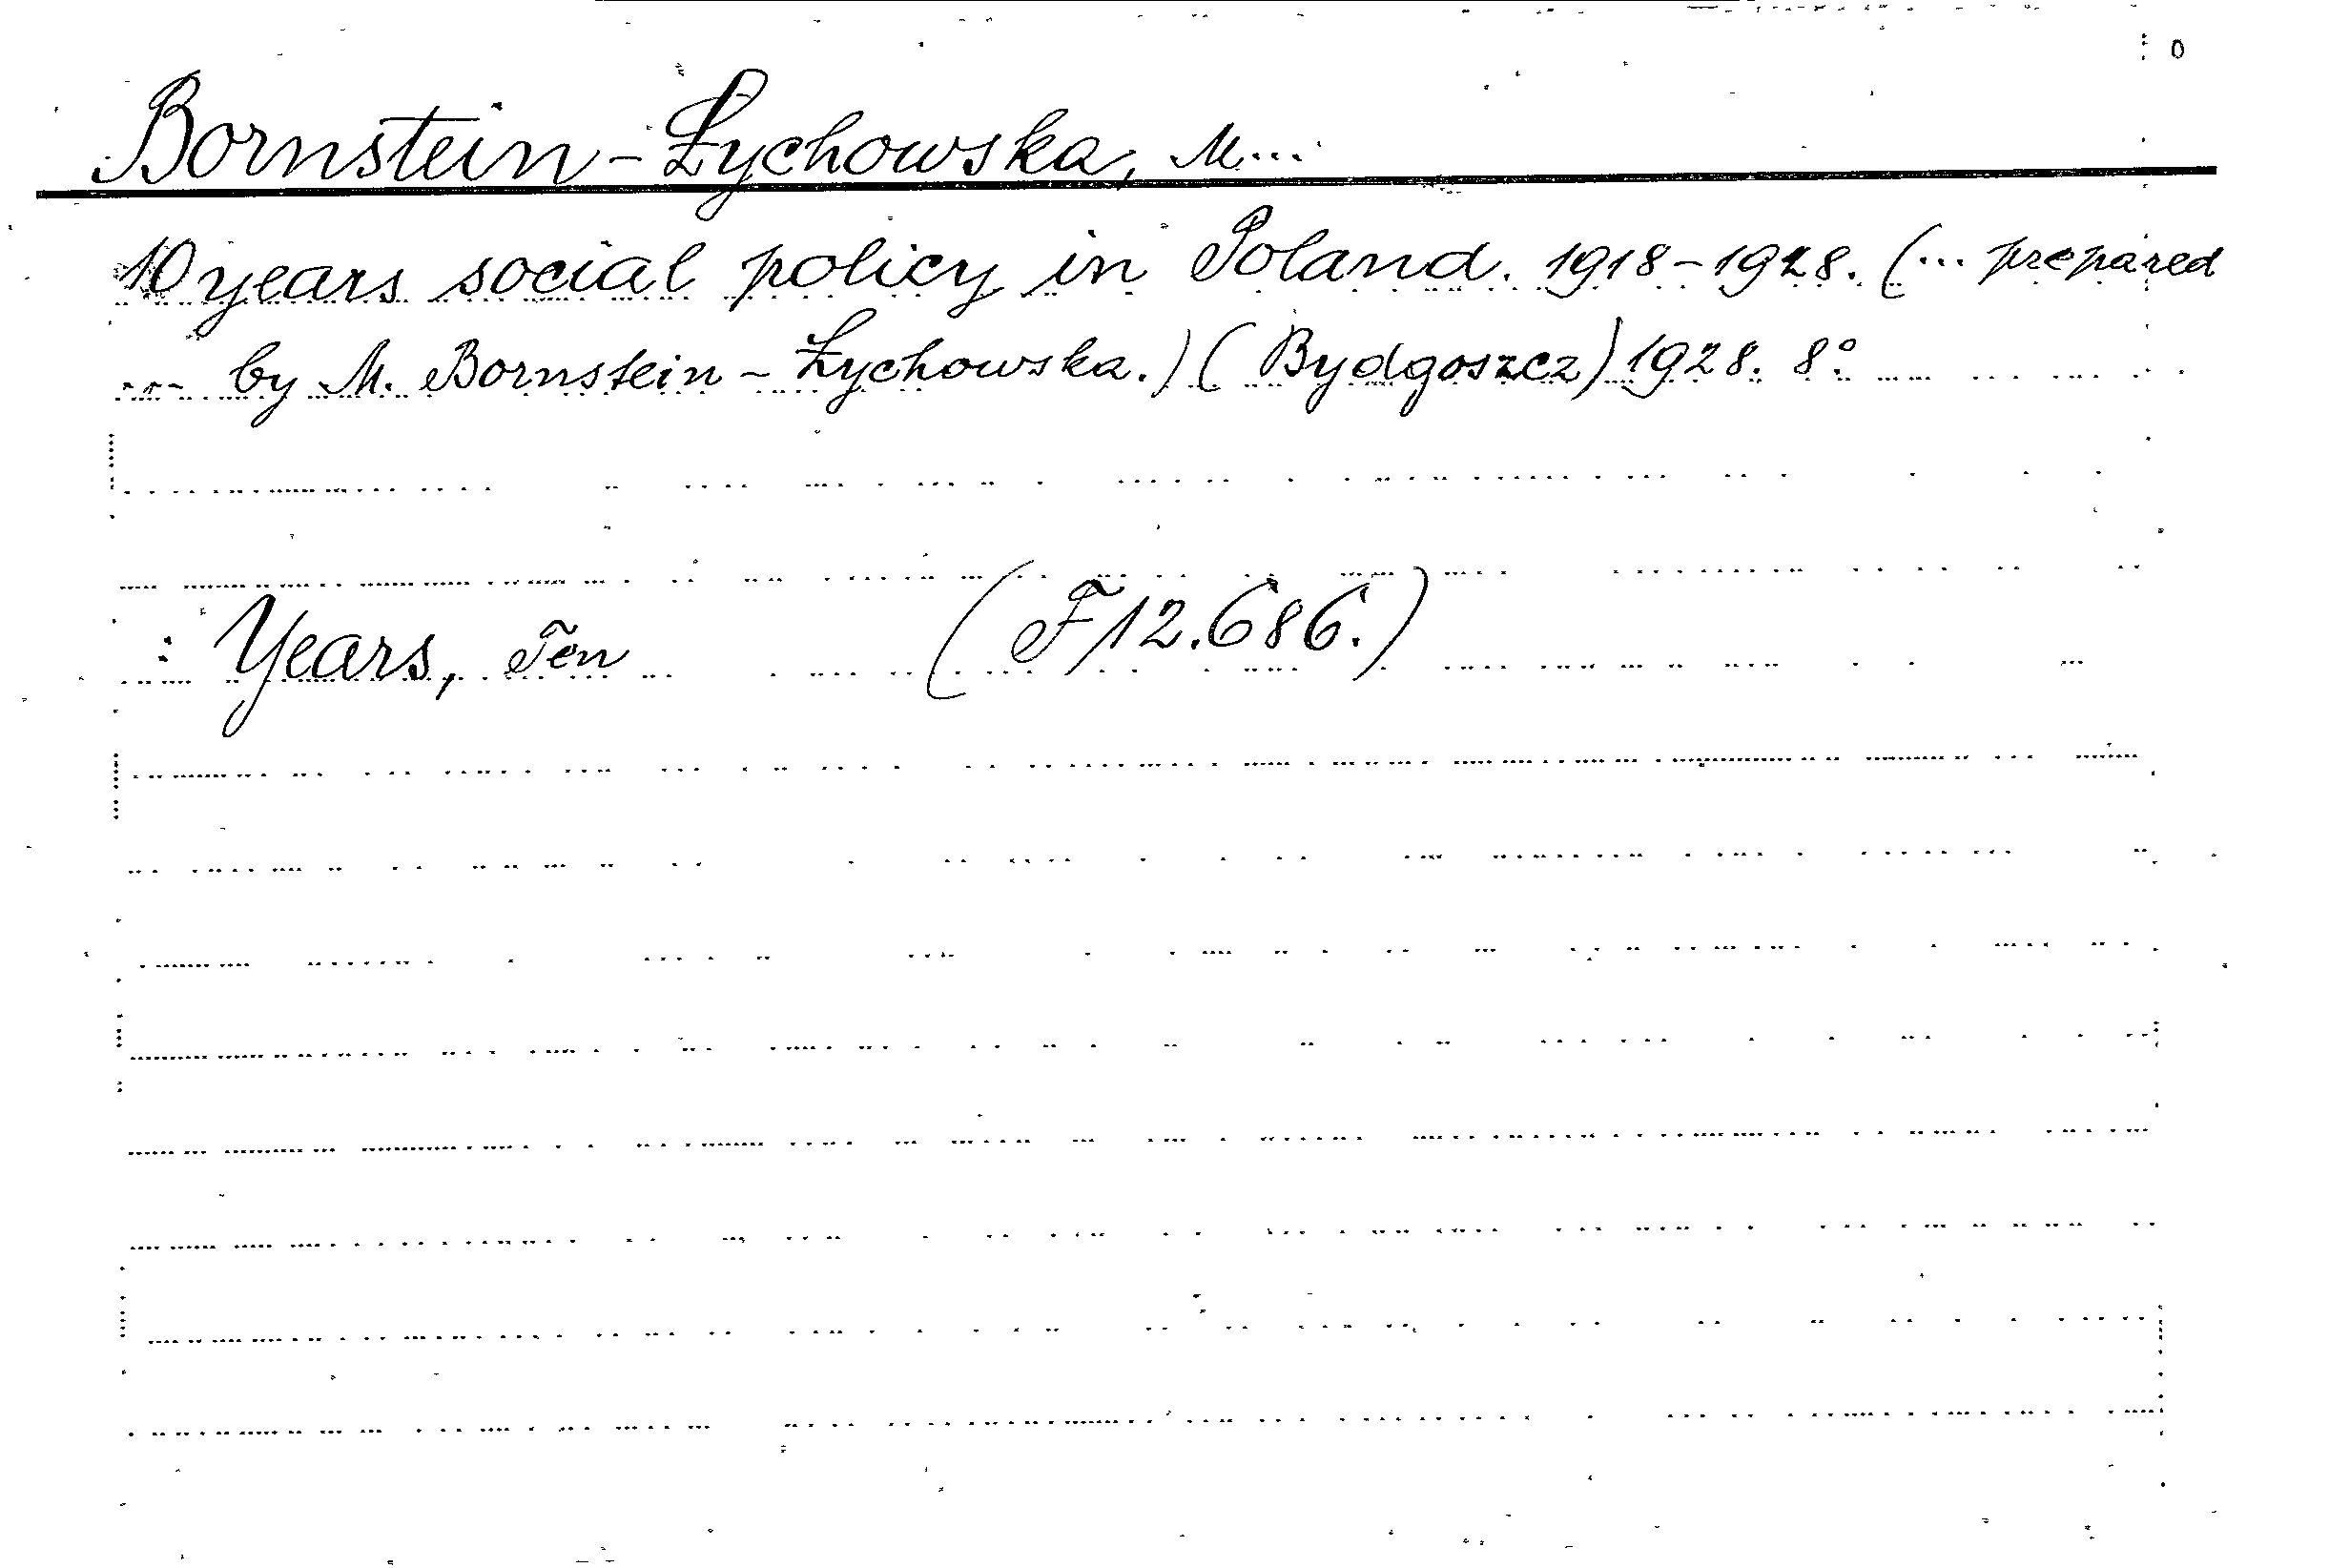 Bornstein-Łychowska, M...
10 years social policy in Poland. 1918-1928. (... prepared
... by M. Bornstein-Łychowska.) (Bydgoszcz) 1928. 8°
: Years, Ten (F12.686.)